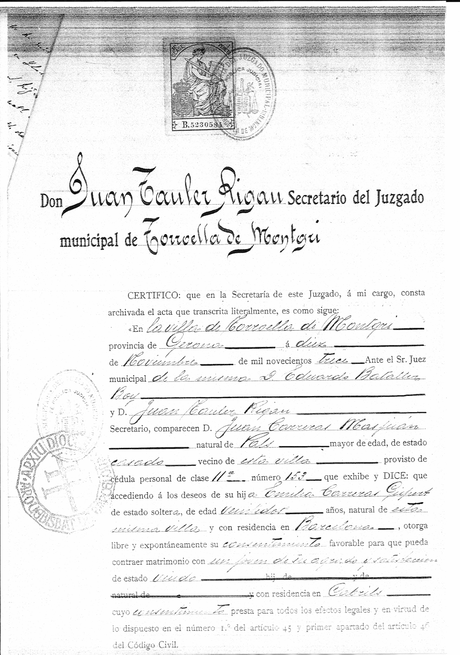 B.5230584
Don Juan Tauler Rigau Secretario del Juzgado
municipal de Torroella de Montgri
CERTIFICO: que en la Secretaría de este Juzgado, á mi cargo, consta
archivada el acta que transcrita literalmente, es como sigue:
«En la villa de Torroella de Montgri
provincia de Gerona á diez
de Noviembre de mil novecientos trece Ante el Sr. Juez
municipal de la misma D. Eduardo Bataller
Roy
y D. Juan Tauler Rigau
Secretario, comparecen D. Juan Carreras Masjuán
natural de Pals mayor de edad, de estado
casado vecino de esta villa provisto de
cédula personal de clase 11ª número 153 que exhibe y DICE: que
accediendo á los deseos de su hija Emilia Carreras
de estado soltera, de edad veintidos años, natural de esta
misma villa y con residencia en Barcelona, otorga
libre y expontáneamente su consentimiento favorable para que pueda
contraer matrimonio con un joven de su agrado y satisfaccion
de estado viudo hij de y de
natural de y con residencia en Cabrils
cuyo consentimiento presta para todos los efectos legales y en virtud de
lo dispuesto en el número 1.º del artículo 45 y primer apartado del artículo 46
del Código Civil.